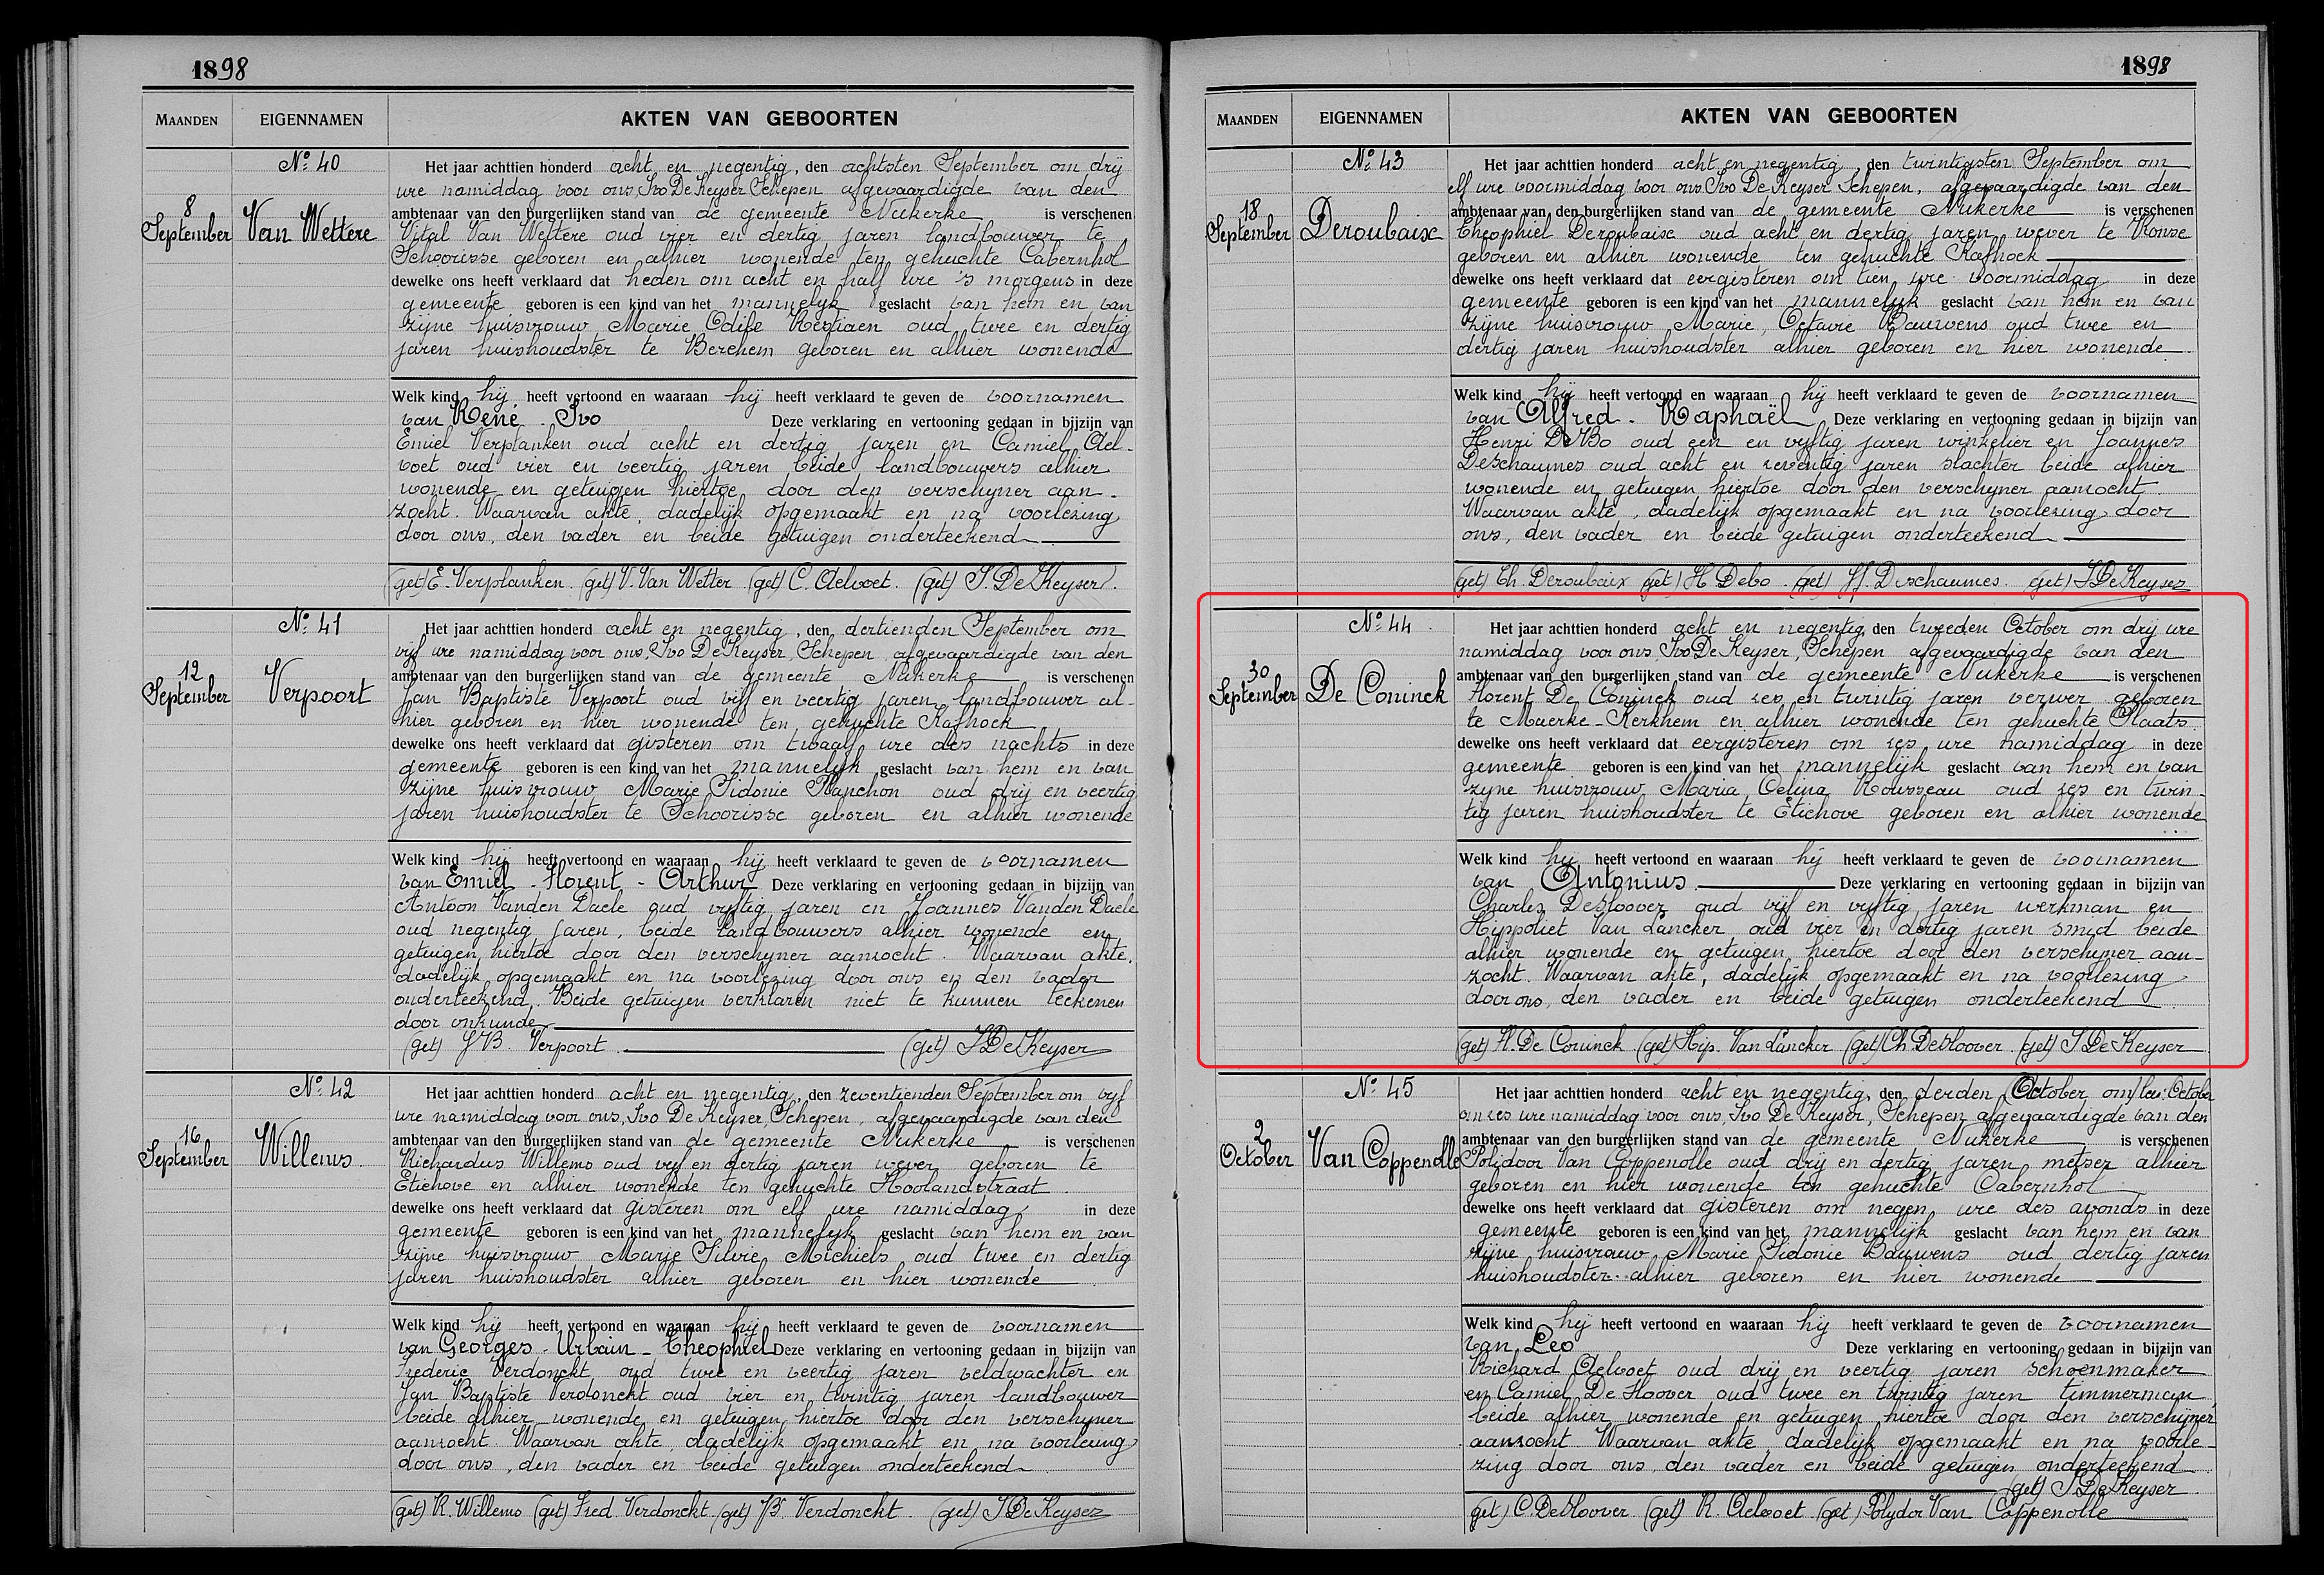 1898
MAANDEN EIGENNAMEN AKTEN VAN GEBOORTEN
No. 40
8 September
Van Wettere
Het jaar achttien honderd acht en negentig, den achtsten September om drij
ure namiddag voor ons, Ivo De Keyser, Schepen afgevaardigde van den
ambtenaar van den burgerlijken stand van de gemeente Nukerke is verschenen
Vital Van Wettere oud vier en dertig jaren landbouwer te
Schoorisse geboren en alhier wonende ten gehuchte Cabernhol
dewelke ons heeft verklaard dat heden om acht en half ure 's morgens in deze
gemeente geboren is een kind van het mannelyk geslacht van hem en van
zijne huisvrouw Marie Odile Restiaen oud twee en dertig
jaren huishoudster te Berchem geboren en alhier wonende
Welk kind hij heeft vertoond en waaraan hij heeft verklaard te geven de voornamen
van René - Ivo Deze verklaring en vertooning gedaan in bijzijn van
Emiel Verplanken oud acht en dertig jaren en Camiel Ael-
voet oud vier en veertig jaren beide landbouwers alhier
wonende en getuigen hiertoe door den verschyner aan-
zocht. Waarvan akte, dadelijk opgemaakt en na voorlezing
door ons, den vader en beide getuigen onderteekend
(get) E. Verplanken (get) V. Van Wetter (get) C. Aelvoet. (get) I. De Keyser.
No. 41
12 September
Verpoort
Het jaar achttien honderd acht en negentig, den dertienden September om
vijf ure namiddag voor ons, Ivo De Keyser, Schepen afgevaardigde van den
ambtenaar van den burgerlijken stand van de gemeente Nukerke is verschenen
Jan Baptiste Verpoort oud vijf en veertig jaren landbouwer al-
hier geboren en hier wonende ten gehuchte Kafhoek
dewelke ons heeft verklaard dat gisteren om twaalf ure des nachts in deze
gemeente geboren is een kind van het mannelyk geslacht van hem en van
zijne huisvrouw Marie Sidonie Planchon oud drij en veertig
jaren huishoudster te Schoorisse geboren en alhier wonende
Welk kind hij heeft vertoond en waaraan hij heeft verklaard te geven de voornamen
van Emiel - Florent - Arthur Deze verklaring en vertooning gedaan in bijzijn van
Antoon Vanden Daele oud vyftig jaren en Joannes Vanden Daele
oud negentig jaren, beide landbouwers alhier wonende en
getuigen hiertoe door den verschyner aanzocht. Waarvan akte,
dadelijk opgemaakt en na voorlezing door ons en den vader
onderteekend. Beide getuigen verklaren niet te kunnen teekenen
door onkunde
(get) J B. Verpoort (get) I De Keyser
No. 42
16 September
Willems
Het jaar achttien honderd acht en negentig, den zeventienden September om vyf
ure namiddag voor ons, Ivo De Keyser, Schepen, afgevaardigde van den
ambtenaar van den burgerlijken stand van de gemeente Nukerke is verschenen
Richardus Willems oud vyf en dertig jaren wever geboren te
Etichove en alhier wonende ten gehuchte Hoolandstraat
dewelke ons heeft verklaard dat gisteren om elf ure namiddag in deze
gemeente geboren is een kind van het mannelyk geslacht van hem en van
zijne huisvrouw Marie Silvie Michiels oud twee en dertig
jaren huishoudster alhier geboren en hier wonende
Welk kind hij heeft vertoond en waaraan hij heeft verklaard te geven de voornamen
van Georges - Urbain - Theophiel Deze verklaring en vertooning gedaan in bijzijn van
Frederic Verdonckt oud twee en veertig jaren veldwachter en
Jan Baptiste Verdonckt oud vier en twintig jaren landbouwer
beide alhier wonende en getuigen hiertoe door den verschyner
aanzocht. Waarvan akte, dadelijk opgemaakt en na voorlezing
door ons, den vader en beide getuigen onderteekend
(get) R. Willems (get) Fred. Verdonckt (get) JB. Verdonckt. (get) I De Keyser
1898
MAANDEN EIGENNAMEN AKTEN VAN GEBOORTEN
No. 43
18 September
Deroubaix
Het jaar achttien honderd acht en negentig, den twintigsten September om
elf ure voormiddag voor ons, Ivo De Keyser, Schepen, afgevaardigde van den
ambtenaar van den burgerlijken stand van de gemeente Nukerke is verschenen
Theophiel Deroubaix oud acht en dertig jaren wever te Ronse
geboren en alhier wonende ten gehuchte Kafhoek
dewelke ons heeft verklaard dat eergisteren om tien ure voormiddag in deze
gemeente geboren is een kind van het mannelyk geslacht van hem en van
zijne huisvrouw Marie Octavie Bauwens oud twee en
dertig jaren huishoudster alhier geboren en hier wonende
Welk kind hij heeft vertoond en waaraan hij heeft verklaard te geven de voornamen
van Alfred - Raphaël Deze verklaring en vertooning gedaan in bijzijn van
Henri De Bo oud een en vyftig jaren winkelier en Joannes
Deschaumes oud acht en zeventig jaren slachter beide alhier
wonende en getuigen hiertoe door den verschyner aanzocht.
Waarvan akte, dadelijk opgemaakt en na voorlezing door
ons, den vader en beide getuigen onderteekend
(get) Th. Deroubaix (get) H Debo (get) JJ. Deschaumes. (get) I De Keyser
No. 44
30 September
De Coninck
Het jaar achttien honderd acht en negentig, den tweeden October om drij ure
namiddag voor ons, Ivo De Keyser, Schepen afgevaardigde van den
ambtenaar van den burgerlijken stand van de gemeente Nukerke is verschenen
Florent De Coninck oud zes en twintig jaren verwer geboren
te Maerke-Kerkhem en alhier wonende ten gehuchte Plaats
dewelke ons heeft verklaard dat eergisteren om zes ure namiddag in deze
gemeente geboren is een kind van het mannelijk geslacht van hem en van
zijne huisvrouw Maria Celina Rousseau oud zes en twin-
tig jaren huishoudster te Etichove geboren en alhier wonende
Welk kind hij heeft vertoond en waaraan hij heeft verklaard te geven de voornamen
van Antonius Deze verklaring en vertooning gedaan in bijzijn van
Charles DeSloover oud vijf en vyftig jaren werkman en
Hippoliet Van Lancker oud vier en dertig jaren smid beide
alhier wonende en getuigen hiertoe door den verschyner aan-
zocht. Waarvan akte, dadelijk opgemaakt en na voorlezing
door ons, den vader en beide getuigen onderteekend
(get) Fl. De Coninck (get) Hip. Van Lancker (get) Ch. DeSloover (get) I De Keyser
No. 45
2 October
Van Coppenolle
Het jaar achttien honderd acht en negentig, den derden October om (lees: October
om zes ure namiddag voor ons, Ivo De Keyser, Schepen afgevaardigde van den
ambtenaar van den burgerlijken stand van de gemeente Nukerke is verschenen
Polidoor Van Coppenolle oud drij en dertig jaren metser alhier
geboren en hier wonende ten gehuchte Cabernhol
dewelke ons heeft verklaard dat gisteren om negen ure des avonds in deze
gemeente geboren is een kind van het mannelijk geslacht van hem en van
zijne huisvrouw Marie Sidonie Bauwens oud dertig jaren
huishoudster alhier geboren en hier wonende
Welk kind hij heeft vertoond en waaraan hij heeft verklaard te geven de voornamen
van Leo Deze verklaring en vertooning gedaan in bijzijn van
Richard Aelvoet oud drij en veertig jaren schoenmaker
en Camiel De Sloover oud twee en twintig jaren timmerman
beide alhier wonende en getuigen hiertoe door den verschijner
aanzocht. Waarvan akte, dadelijk opgemaakt en na voorle-
zing door ons, den vader en beide getuigen onderteekend
(get) I De Keyser
(get) C. DeSloover (get) R. Aelvoet (get) Polydor Van Coppenolle